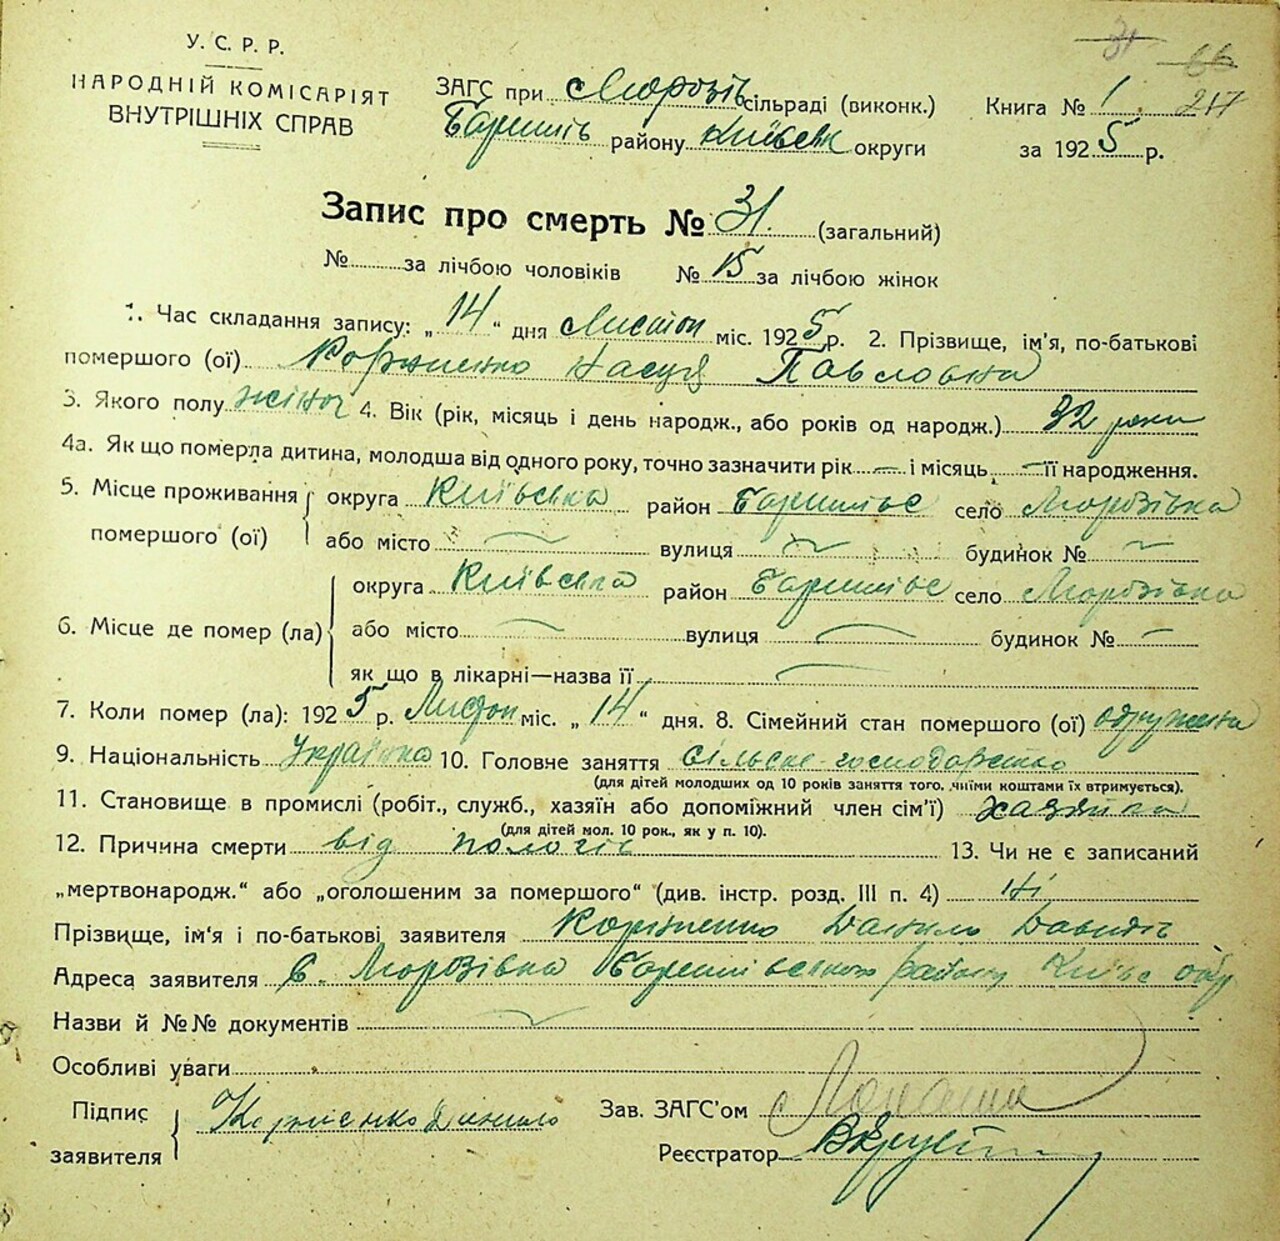 У. С. Р. Р.
НАРОДНІЙ КОМІСАРІЯТ
ВНУТРІШНІХ СПРАВ
31 66
ЗАГС при Морозів сільраді (виконк.)
Баришів району Київськ округи
Книга № 1 217
за 1925 р.
Запис про смерть № 31. (загальний)
№ за лічбою чоловіків № 15 за лічбою жінок
1. Час складання запису: „14“ дня Листоп міс. 1925 р. 2. Прізвище, ім'я, по-батькові
помершого (ої) Насця Павловна
3. Якого полу жіноч 4. Вік (рік, місяць і день народж., або років од народж.) 32 роки
4а. Як що померла дитина, молодша від одного року, точно зазначити рік — і місяць — її народження.
5. Місце проживання помершого (ої) округа Київська район Баришівс село Морозівка
або місто вулиця будинок №
6. Місце де помер (ла) округа Київська район Баришівс село Морозівка
або місто вулиця будинок №
як що в лікарні—назва її
7. Коли помер (ла): 1925 р. Листоп міс. „14“ дня. 8. Сімейний стан помершого (ої) одружена
9. Національність Українка 10. Головне заняття сільське-господарство
(для дітей молодших од 10 років заняття того, чиїми коштами їх втримується).
11. Становище в промислі (робіт., служб., хазяїн або допоміжний член сім'ї) хазяйка
(для дітей мол. 10 рок., як у п. 10).
12. Причина смерти від пологів 13. Чи не є записаний
„мертвонародж.“ або „оголошеним за помершого“ (див. інстр. розд. III п. 4) Ні
Прізвище, ім'я і по-батькові заявителя Корнієнко Данило Давидів
Адреса заявителя С. Морозівка Баришівського району Київс окр
Назви й №№ документів
Особливі уваги
Підпис заявителя Корнієнко Данило
Зав. ЗАГС'ом
Реєстратор